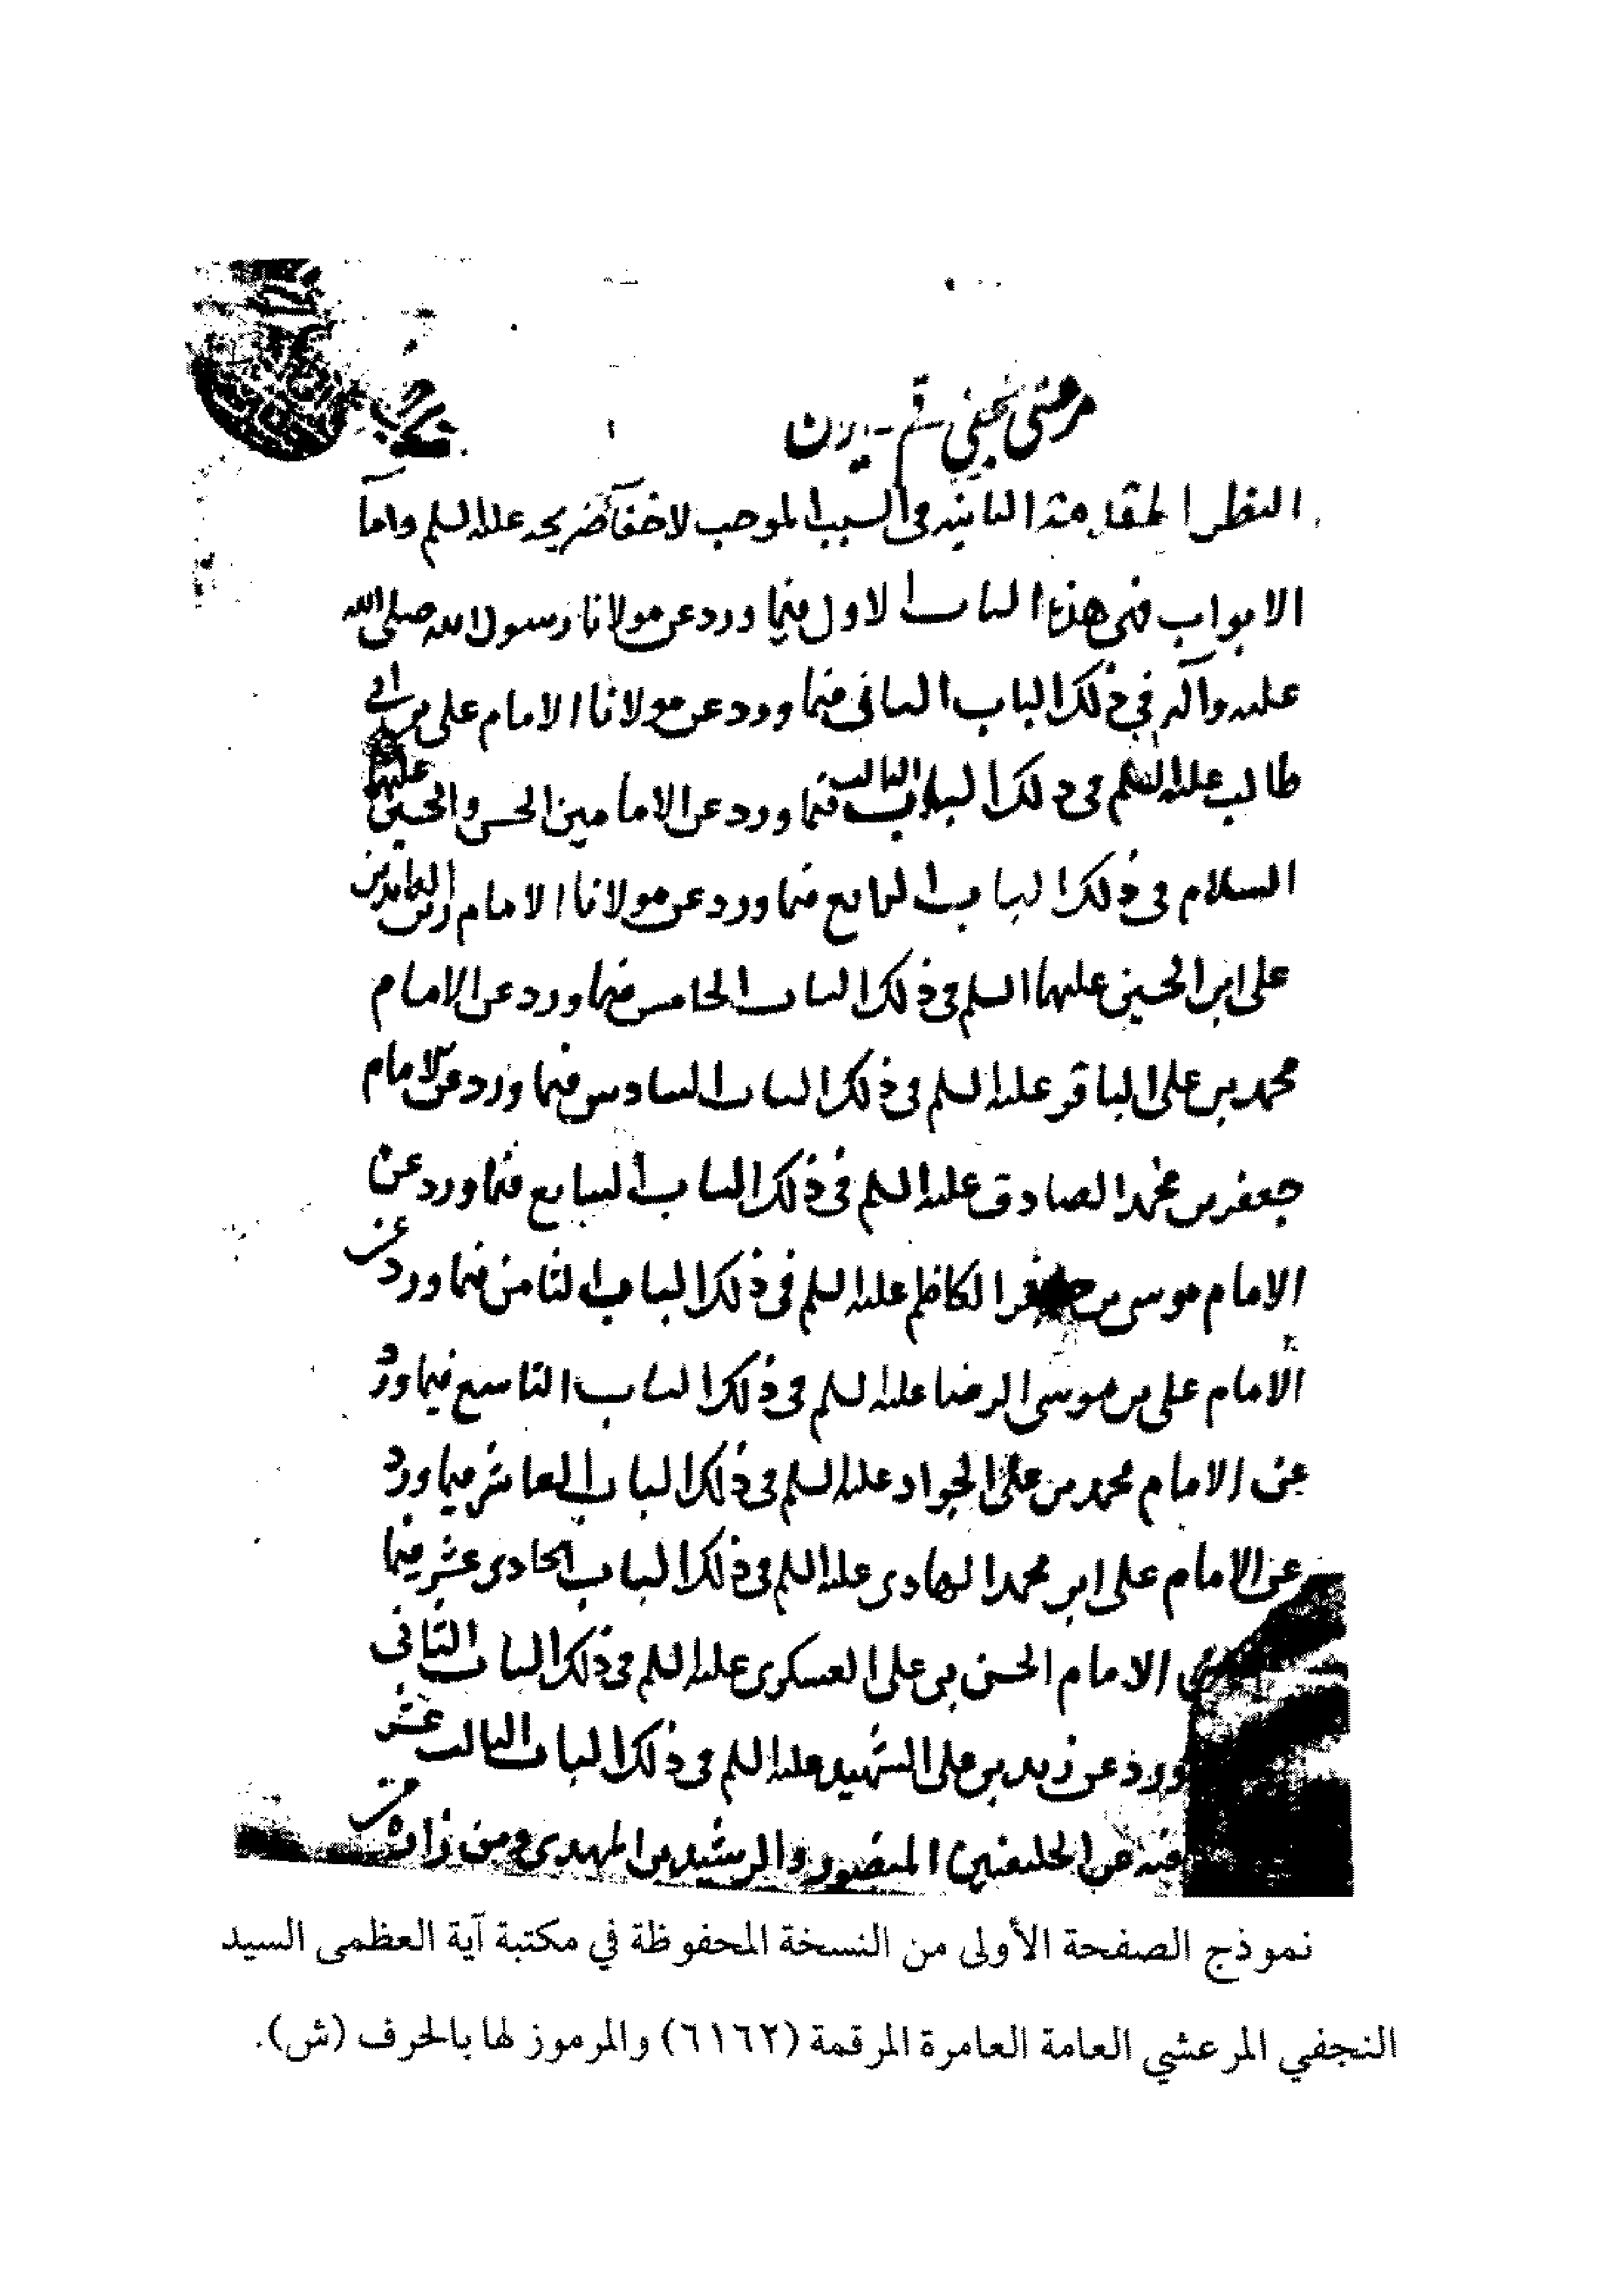 مرعشي نجفي قم - ايران
النظر المقدمة الثانيه فى السبب الموجب لاخفآ ضريحه عليه السلم واما
الابواب فهى هذه الباب الاول فيما ورد عن مولانا رسول الله صلى الله
عليه وآله في ذلك الباب الثانى فيما ورد عن مولانا الامام على بن ابي
طالب عليه السلم فى ذلك الباب الثالث فيما ورد عن الامامين الحسن والحسين عليهما
السلام فى ذلك الباب الرابع فيما ورد عن مولانا الامام زين العابدين
على ابن الحسين عليهما السلم فى ذلك الباب الخامس فيما ورد عن الامام
محمد بن على الباقر عليه السلم فى ذلك الباب السادس فيما ورد عن الامام
جعفر بن محمد الصادق عليه السلم فى ذلك الباب السابع فيما ورد عن
الامام موسى بن جعفر الكاظم عليه السلم فى ذلك الباب الثامن فيما ورد عن
الامام على بن موسى الرضا عليه السلم فى ذلك الباب التاسع فيما ورد
عن الامام محمد بن على الجواد عليه السلم فى ذلك الباب العاشر فيما ورد
عن الامام على ابن محمد الهادى عليه السلم فى ذلك الباب الحادى عشر فيما
الامام الحسن بن على العسكرى عليه السلم فى ذلك الباب الثانى
ورد عن زيد بن على الشهيد عليه السلم فى ذلك الباب الثالث عشر
عن الخليفتين المنصور والرشيد بن المهدى ومن زاره من
نموذج الصفحة الأولى من النسخة المحفوظة في مكتبة آية العظمى السيد
النجفي المرعشي العامة العامرة المرقمة (٦١٦٢) والمرموز لها بالحرف (ش).